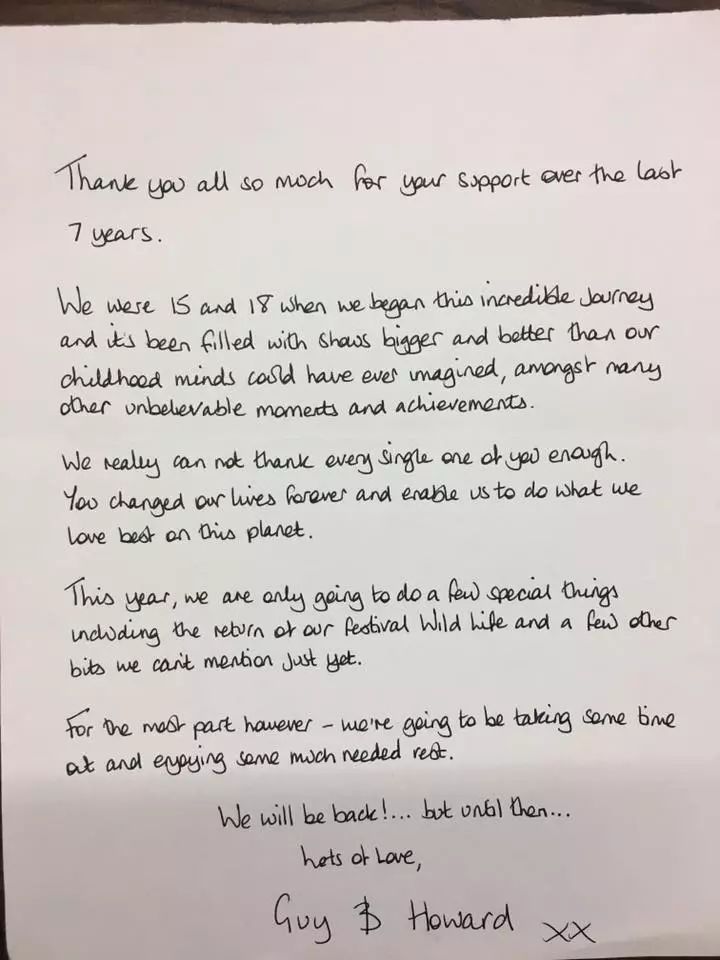 Thank you all so much for your support over the last
7 years.
We were 15 and 18 when we began this incredible journey
and it's been filled with shows bigger and better than our
childhood minds could have ever imagined, amongst many
other unbelievable moments and achievements.
We really can not thank every single one of you enough.
You changed our lives forever and enable us to do what we
love best on this planet.
This year, we are only going to do a few special things
including the return of our festival Wild Life and a few other
bits we can't mention just yet.
For the most part however - we're going to be taking some time
out and enjoying some much needed rest.
We will be back!... but until then...
Lots of Love,
Guy & Howard xx